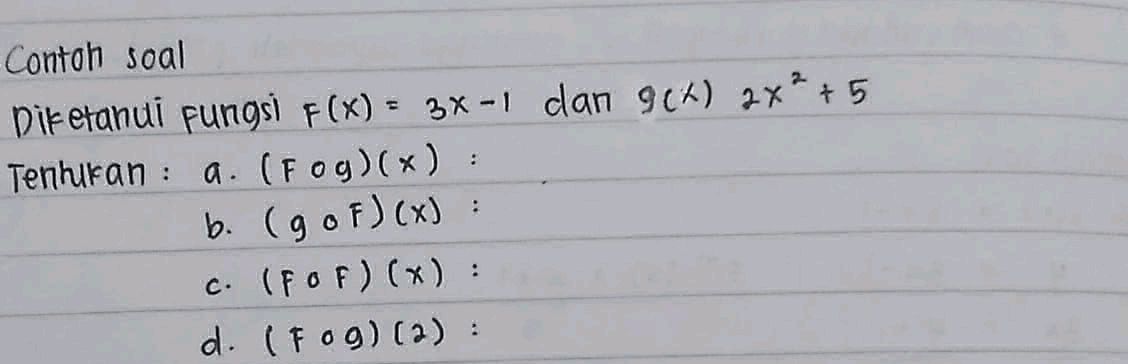 Contoh soal
Diketahui fungsi F(x) = 3x - 1 dan g(x) 2x² + 5
Tentukan : a. (F o g)(x) :
b. (g o F)(x) :
c. (F o F)(x) :
d. (F o g)(2) :